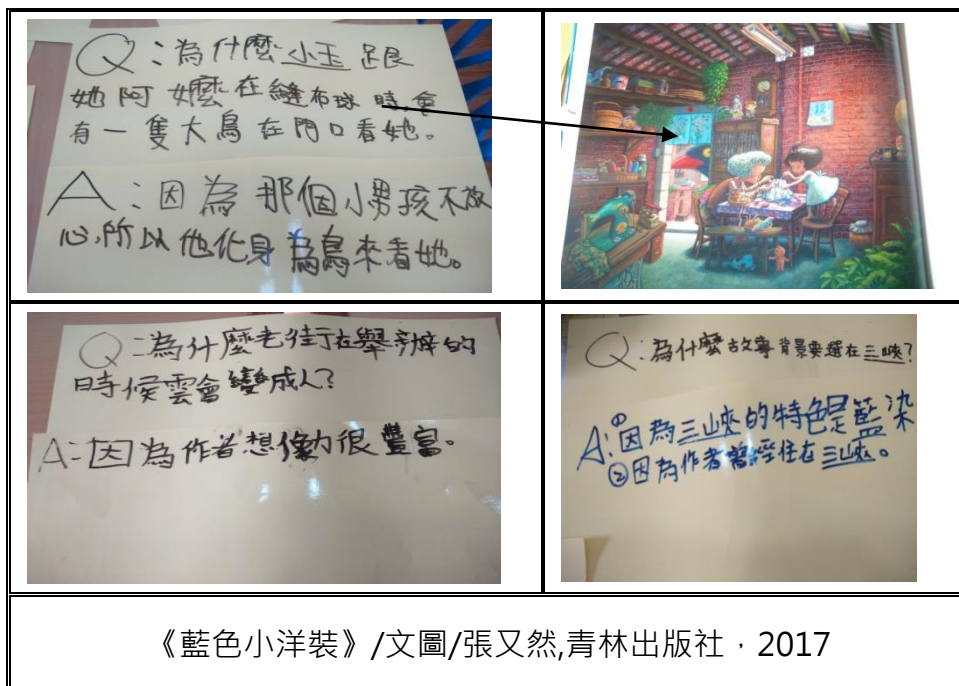 Q:為什麼小玉跟
她阿嬤在縫布球時,會
有一隻大鳥在門口看她。
A:因為那個小男孩不放
心,所以他化身為鳥來看她。
Q:為什麼老街在舉辦的
時候雲會變成人?
A:因為作者想像力很豐富。
Q:為什麼故事背景要選在三峽?
A:①因為三峽的特色是藍染
②因為作者曾經住在三峽。
《藍色小洋裝》/文圖/張又然,青林出版社,2017